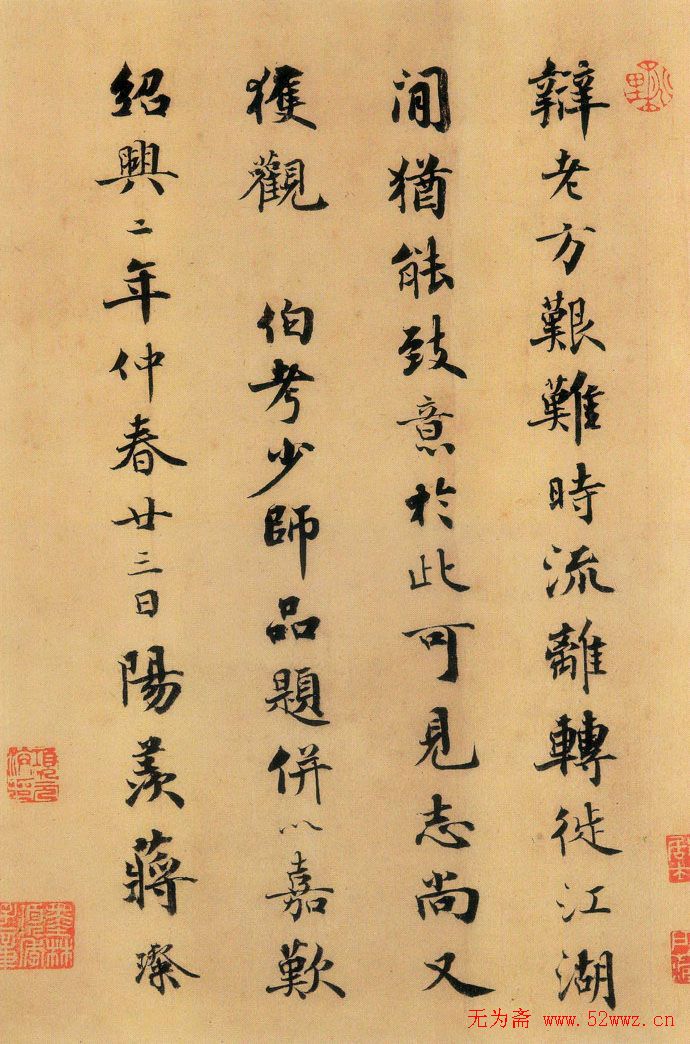 辯老方艱難時流離轉徙江湖
間猶能致意於此可見志尚又
獲觀 伯考少師品題併以嘉歎
紹興二年仲春廿三日陽羨蔣璨
无为斋 www.52wwz.cn